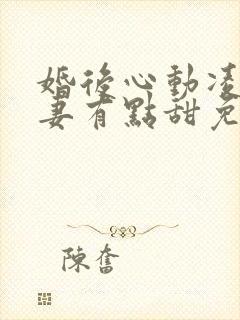 婚後心動凌
妻有點甜免
陳奮